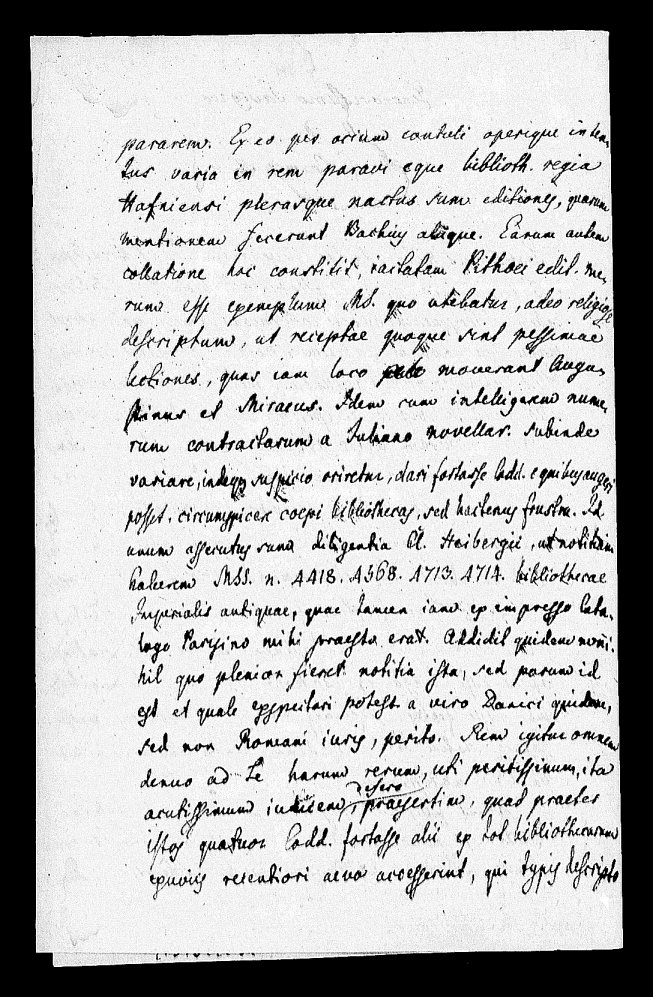 pararem. Ex eo per otium contuli operique inten-
tus varia in rem paravi eque biblioth. regia
Hafniensi plerasque nactus sum editiones, quarum
mentionem fecerunt Bachius aliique. Earum autem
collatione hoc constitit, iactatam Pithoei edit. me-
rum esse exemplum MS. quo utebatur, adeo religiose
descriptum, ut receptae quoque sint pessimae
lectiones, quas eam loco moverant Augu-
stinus et Miraeus. Idem cum intelligerem nume-
rum contractarum a Juliano novellar. subinde
variare, indeque suspicio oriretur, dari fortasse Codd. e quibus augeri
posset, circumspicere coepi bibliothecas, sed hactenus frustra. Id
unum assecutus sum diligentia Cl. Heibergii, ut notitiam
haberem MSS. n. 4418. 4568. 4713. 4714. bibliothecae
Imperialis antiquae, quae tamen iam ex impresso Cata-
logo Parisino mihi praesto erat. Addidit quidem non ni-
hil quo plenior fieret notitia ista, sed parum id
est et quale exspectari potest a viro Danici quidem,
sed non Romani iuris, perito. Rem igitur omnem
denuo ad Te harum rerum, uti peritissimum, ita
defero
acutissimum iudicem, praesertim, quod praeter
istos quatuor Codd. fortasse alii ex tot bibliothecarum
exuviis recentiori aevo accesserint, qui typis descripto